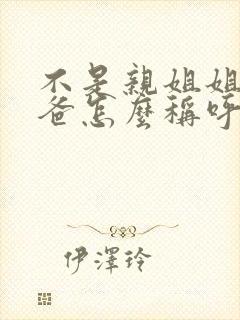 不是親姐姐
爸怎麼稱呼
伊澤玲